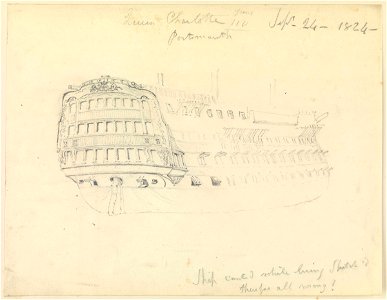 Queen Charlotte Guns 110 Sept 24 - 1824 -
Portsmouth
Ship cant'd while being Sketch'd
therefore all wrong!